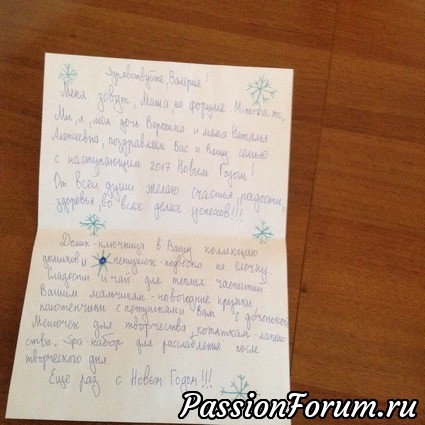 Здравствуйте, Валерия!
Меня зовут, Маша, на форуме
Мы, я, моя дочь Верошка и мама Наталья
Алексеевна, поздравляем Вас и Вашу семью
с наступающим 2017 Новым Годом!
От всей души желаю счастья, радости,
здоровья, во всех делах успехов!!!
Домик-ключница в Вашу коллекцию
домиков и петушок-подвеска на ёлочку.
Сладости и чай для теплых чаепитий
Вашим мальчикам - новогодние кружки
полотенчики с петушками Вам с доченькой
Мешочек для творчества, котяткам - лаком-
ства. Spa-набор для расслабления после
творческого дня
Еще раз с Новым Годом!!!
PassionForum.ru